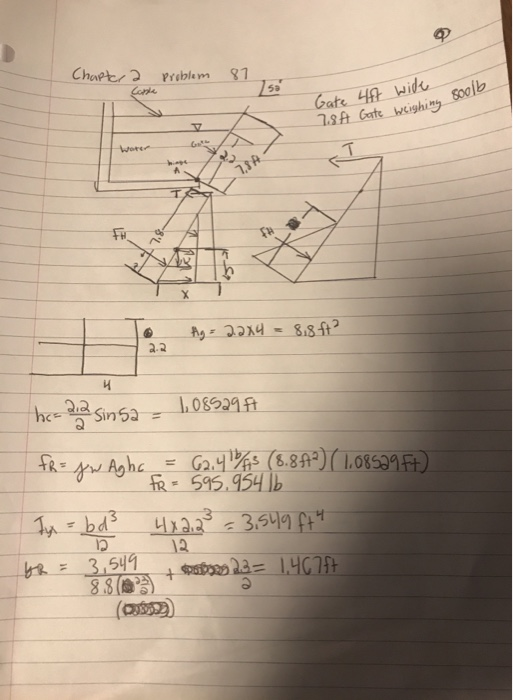 Chapter 2 Problem 87
Cable
52°
Gate 4ft wide
7.8ft Gate weighing 800lb
Water
Gate
hinge
A
2.2
7.8ft
T
T
7.8
FH
FH
W
y
x
2.2
4
Ag = 2.2x4 = 8.8ft²
hc = 2.2/2 Sin52 = 1.08529ft
FR = γw Aghc = 62.4 lb/ft³ (8.8ft²)(1.08529ft)
FR = 595.954 lb
Ix = bd³/12 4x2.2³/12 = 3.549 ft⁴
yR = 3.549/8.8( ) + /2 = 1.467ft